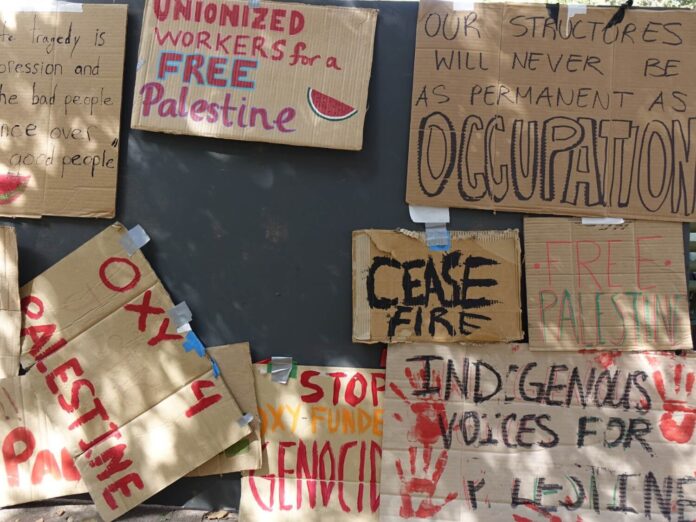 tragedy is
pression and
the bad people
nce over
good people"
UNIONIZED
WORKERS for a
FREE
Palestine
OUR STRUCTURES
WILL NEVER BE
AS PERMANENT AS
OCCUPATION
CEASE
FIRE
FREE
PALESTINE
OXY
4
PALESTINE
STOP
OXY-FUNDE
GENOCID
INDIGENOUS
VOICES FOR
P LESTINE